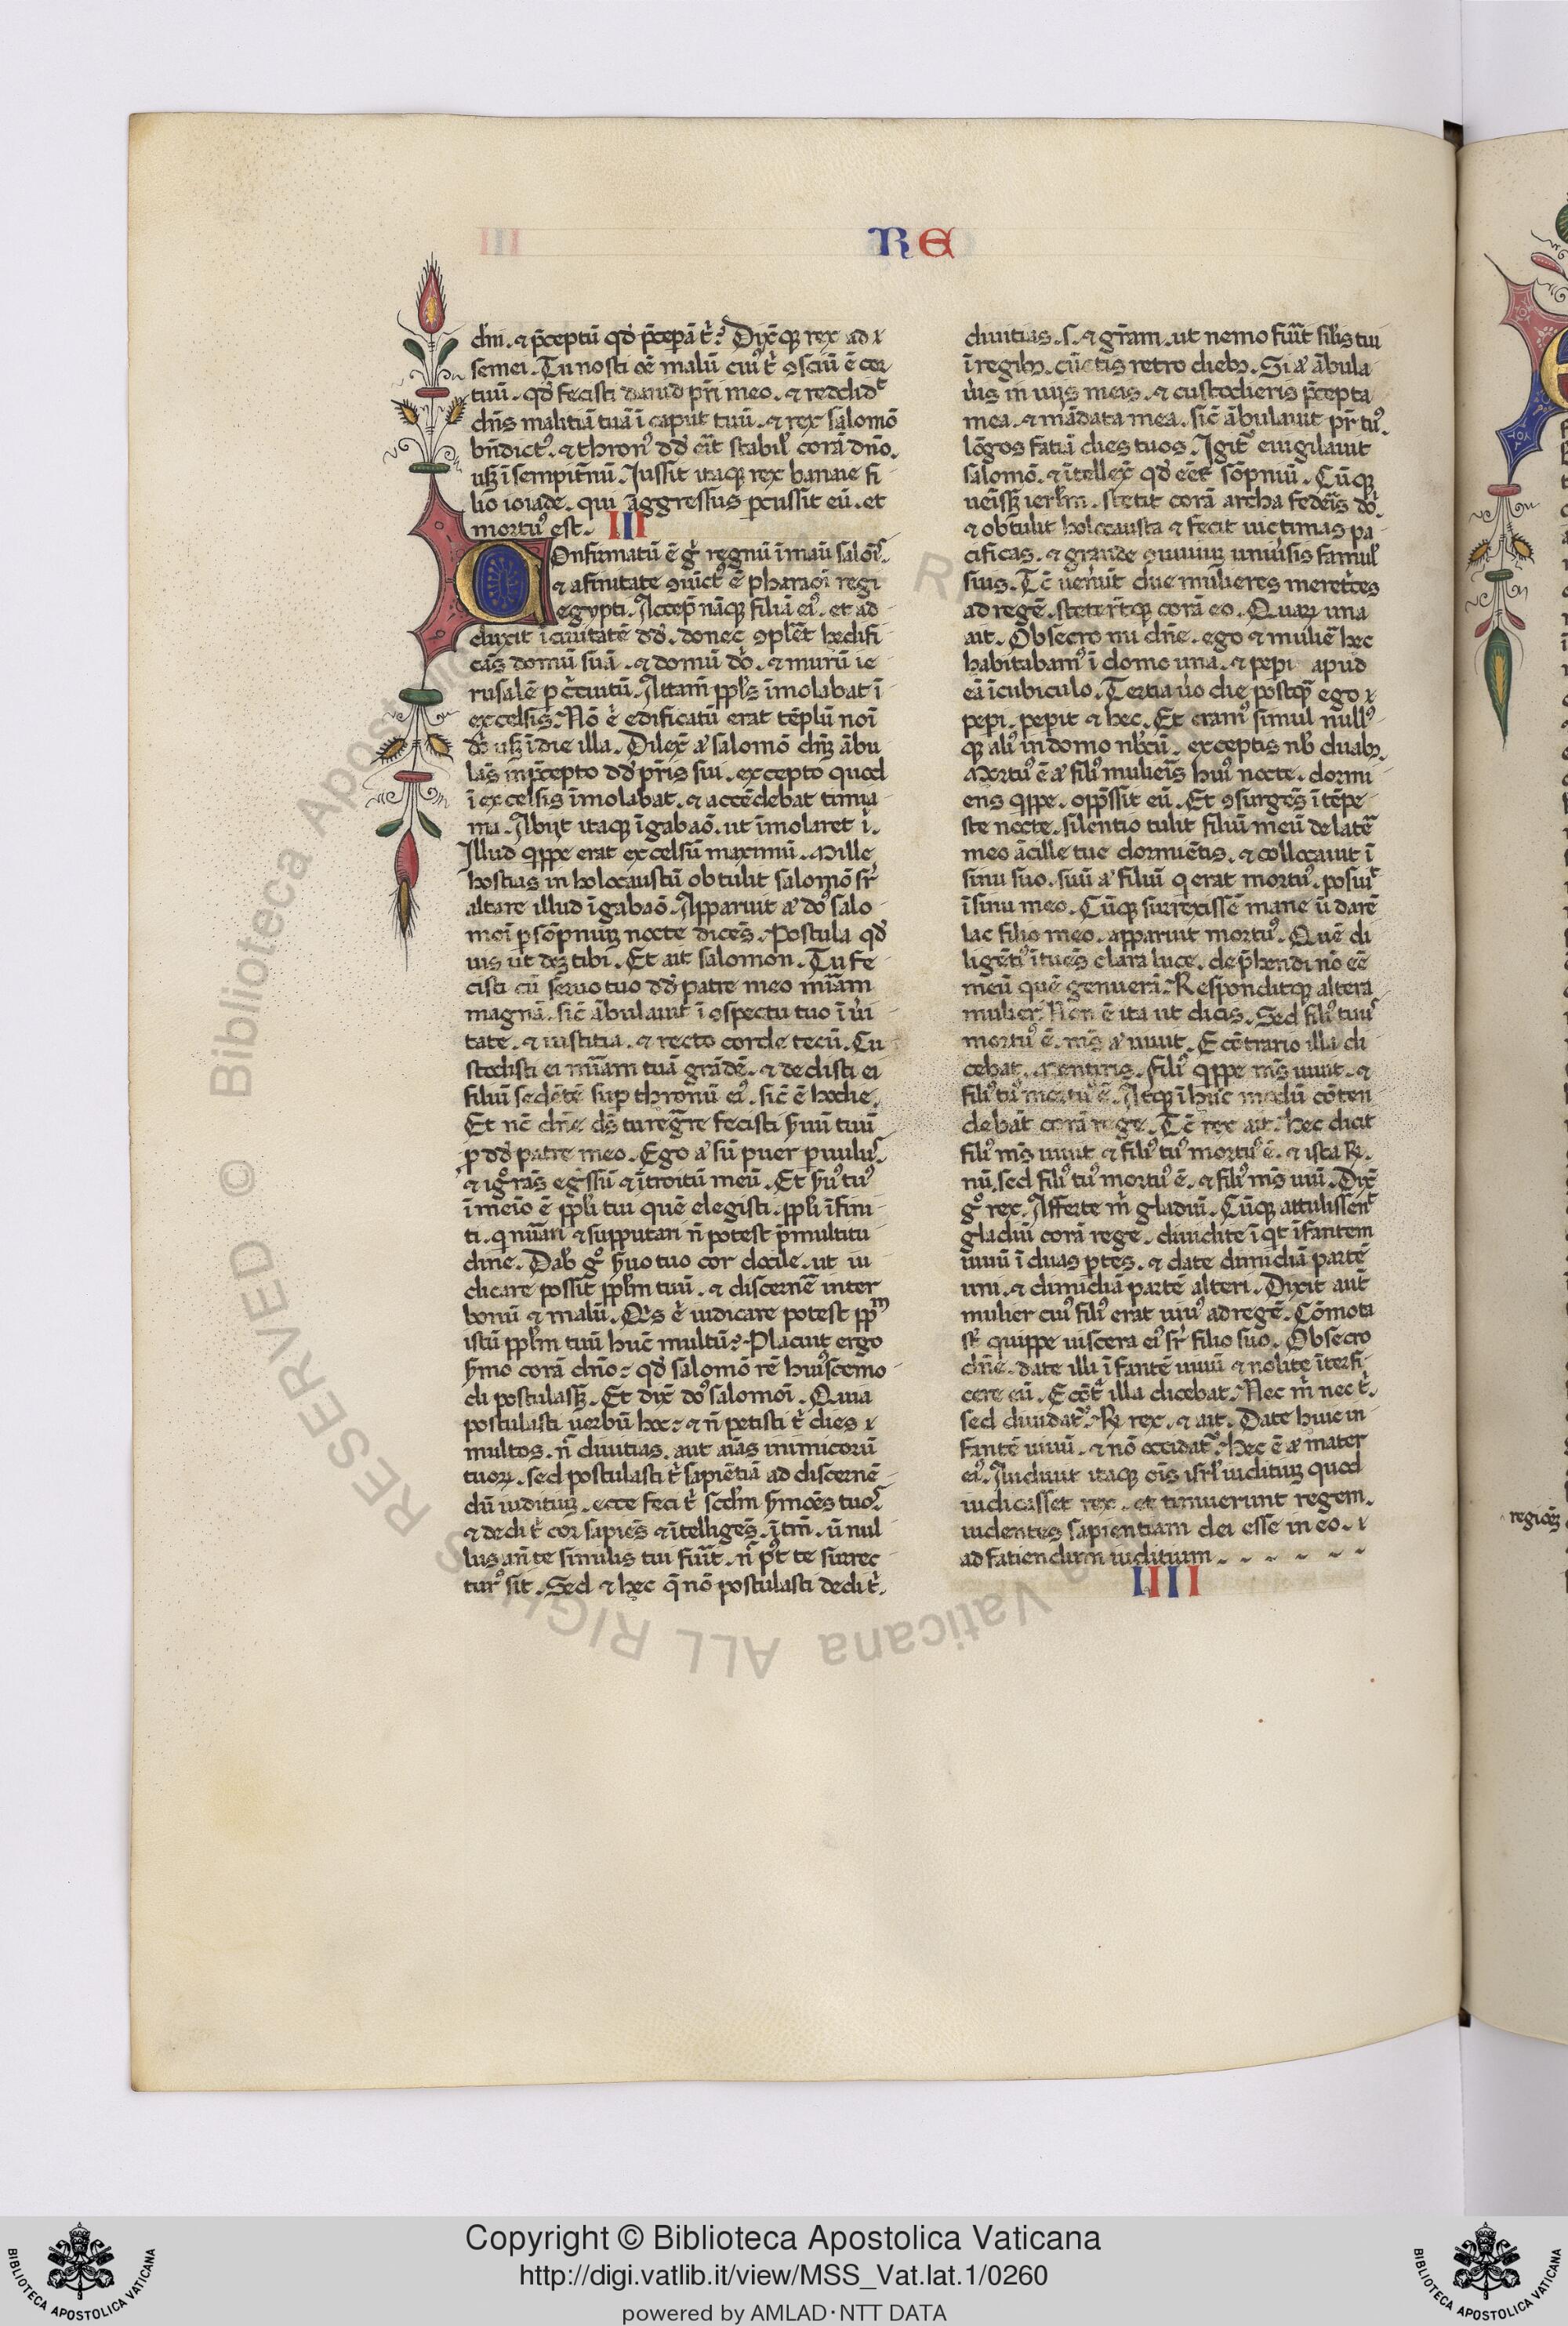 RE
dñi. ⁊ p̄ceptū qd̓ p̄cepā t̓? Dix̄cq̧ rex ad ɩ
semei. Tu nosti oē malū cuiꝰ t̓ ꝯsciū ē cor
tuū. qd̓ fecisti dauid pr̄i meo. ⁊ reddidᵗ
dn̄s malitiā tuā ī caput tuū. ⁊ rex salomō
bn̄dictꝰ. ⁊ thronꝰ dd̓ eīt stabil̓ corā dn̄o.
usq̧ ī sempit̄nū. Jussit itaq̧ rex banaie fi
lio ioiade. qui aggressus ꝑcussit eū. et
mortuꝰ est. III
Confirmatū ē g̓ regnū ī manu salōis.
⁊ afinitate ꝯiūctꝰ ē pharaoī regi
egypti. Accep̄ nāq̧ filiā eiꝰ. et ad
duxit ī ciuitatē dd̓. donec ꝯpleret hedifi
cās domū suā. ⁊ domū do̓. ⁊ murū ie
rusalē ꝑ c̄cuitū. Attam̄ ppl̓s īmolabat ī
excelsis. Nō .n. edificatū erat tēplū noī
do̓ usq̧ ī die illa. Dilex̄ a̓ salomō dn̄ꝫ ābu
lās in p̄cepto dd̓ pr̄is sui. excepto quod
ī excelsis īmolabat. ⁊ accēdebat timia
ma. Abijt itaq̧ ī gabaō. ut īmolaret ī.
Illud qͥppe erat excelsū maximū. Mille
hostias in holocaustū obtulit salomō sr̄
altare illud ī gabaō. Apparuit a̓ do̓ salo
moī ꝑ sōpniuꝫ nocte dicēs. Postula qd̓
uis ut deꝫ tibi. Et ait salomon. Tu fe
cisti cū seruo tuo dd̓ patre meo mīam
magnā. sic̄ ābulauit ī ꝯspectu tuo ī ui
tate. ⁊ iustitia. ⁊ recto corde tecū. Cu
stodisti ei mīam tuā grādē. ⁊ dedisti ei
filiū sedētē suꝑ thronū eiꝰ. sic̄ ē hodie.
Et nc̄ dn̄e ds̄ tu regn̄re fecisti ẏuū tuū
ꝑ dd̓ patre meo. Ego a̓ sū puer ꝑuulꝰ.
⁊ ignorās egssū ⁊ ītroitū meū. Et ẏuꝰ tuꝰ
ī meīo ē ppl̓i tui quē elegisti. ppl̓i īfini
ti. q nūari ⁊ supputari n̄ potest p̄ multitu
dine. Dab̓ gͦ ẏuo tuo cor docile. ut iu
dicare possit ppl̓m tuū. ⁊ discernē inter
bonū ⁊ malū. Qͥs .n. iudicare potest ppᵐ
istū ppl̓m tuū huc̄ multū? Placuit ergo
ẏmo corā dn̄o: qd̓ salomō rē huiꝰscemo
di postulassꝫ. Et dix̄ do̓ salomoī. Quia
postulasti uerbū hoc: ⁊ n̄ petisti t̓ dies ɩ
multos. n̄ diuitias. aut aīas inimicorū
tuoꝝ. sed postulasti t̓ sapiētiā ad discernē
dū iuditiuꝫ. ecce feci t̓ scd̓m ẏmōēs tuoˢ
⁊ dedi t̓ cor sapiēs ⁊ ītelligēs. ītm̄. ū nul
lus an̄ te similis tui fuīt. n̄ pᵗ te surrec
turꝰ sit. Sed ⁊ hęc q̄ nō postulasti dedi t̓.
diuitias. s. ⁊ gl̄am. ut nemo fuīt sil̓is tui
ī regibꝫ. cūctis retro diebꝫ. Si a̓ ābula
u̓is in uijs meis. ⁊ custodieris p̄cepta
mea. ⁊ mādata mea. sic̄ ābulauit pr̄ tuꝰ.
lōgos fatiā dies tuos. Igit̓ euigilauit
salomō. ⁊ ītellex̄ qd̓ eēt sōpniū. Cūq̧
uēissꝫ ierl̓m. stetit corā archa federis do̓.
⁊ obtulit holocausta ⁊ fecit uictimas pa
cificas. ⁊ grande ꝯuiuiuꝫ uniu̓sis famul̓
suis. Tc̄ uen̄ūt due mulieres meret̓ces
ad regē. stetertq̧ corā eo. Quaꝝ una
ait. Obsecro mi dn̄e. ego ⁊ mulie̓ hec
habitabamꝰ ī domo una. ⁊ pepi apud
eā ī cubiculo. Tertia u̓o die postqꝫ ego ɩ
pepi. pepit ⁊ hec. Et eramꝰ simul nullꝰ
q̧ aliꝰ in domo nb̓cū. exceptis nb̓ duabꝫ.
Mortuꝰ ē a̓ filiꝰ mulieris huiꝰ nocte. dormi
ens qͥppe. opp̄ssit eū. Et ꝯsurgēs ītēpe
ste nocte. silentio tulit filiū meū de late̓
meo ācille tue dormiētis. ⁊ collocauit ī
sinu suo. suū a̓ filiū q erat mortuꝰ. posuiᵗ
ī sinu meo. Cūq̧ surrexissē mane ū darē
lac filio meo. apparuit mortuꝰ. Quē di
ligētiꝰ ītuēs clara luce. dep̄hendi nō eē
meū quē genuerā. Responditq̧ altera
mulier. Non ē ita ut dicis. Sed filiꝰ tuuˢ
mortuꝰ ē. mꝰs a̓ uiuit. E cōtrario illa di
cebat. Mentiris. filiꝰ qͥppe mꝰs uiuit. ⁊
filiꝰ tuꝰ mortuꝰ ē. Atq̧ ī huc̄ modū cōten
debāt corā rege. Tc̄ rex ait. hec dicit
filiꝰ mꝰs uiuit ⁊ filiꝰ tuꝰ mortuꝰ ē. ⁊ ista ℟.
nū. sed filiꝰ tuꝰ mortuꝰ ē. ⁊ filiꝰ mꝰs uiū. Dix̄
gͦ rex. Afferte m̓ gladiū. Cūq̧ attulissenᵗ
gladiū corā rege. diuidite īqt̓ īfantem
uiuū ī duas ꝑtes. ⁊ date dimidiā partē
uni. ⁊ dimidiā partē alteri. Dixit aut̄
mulier cuiꝰ filiꝰ erat uiuꝰ ad regē. Cōmota
st̓ quippe uiscera eiꝰ sr̄ filio suo. Obsecro
dn̄e. date illi īfantē uiuū ⁊ nolite īterfi
cere eū. E cōtͣ illa dicebat. Nec m̓ nec t̓.
sed diuidat̓. ℟ rex. ⁊ ait. Date huic in
fantē uiuū. ⁊ nō occidat̓. hec ē .n. mater
eiꝰ. Audiuit itaq̧ oīs isrl̓ iuditiuꝫ quod
iudicasset rex. et timuerunt regem.
uidentes sapientiam dei esse in eo. ɩ
ad fatiendum iuditium.
IIII
regiōꝫ
© Biblioteca Apostolica Vaticana ALL RIGHTS RESERVED
Copyright © Biblioteca Apostolica Vaticana
http://digi.vatlib.it/view/MSS_Vat.lat.1/0260
powered by AMLAD·NTT DATA
BIBLIOTECA APOSTOLICA VATICANA
BIBLIOTECA APOSTOLICA VATICANA